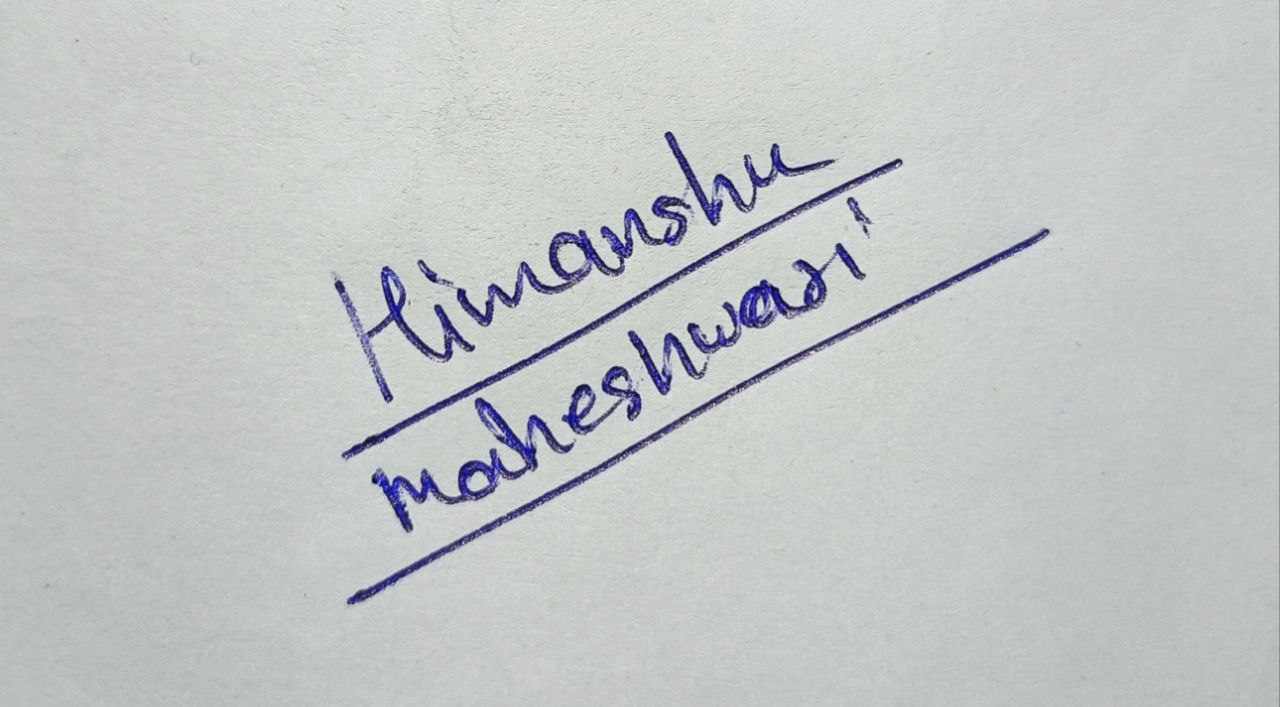 Himanshu
maheshwari